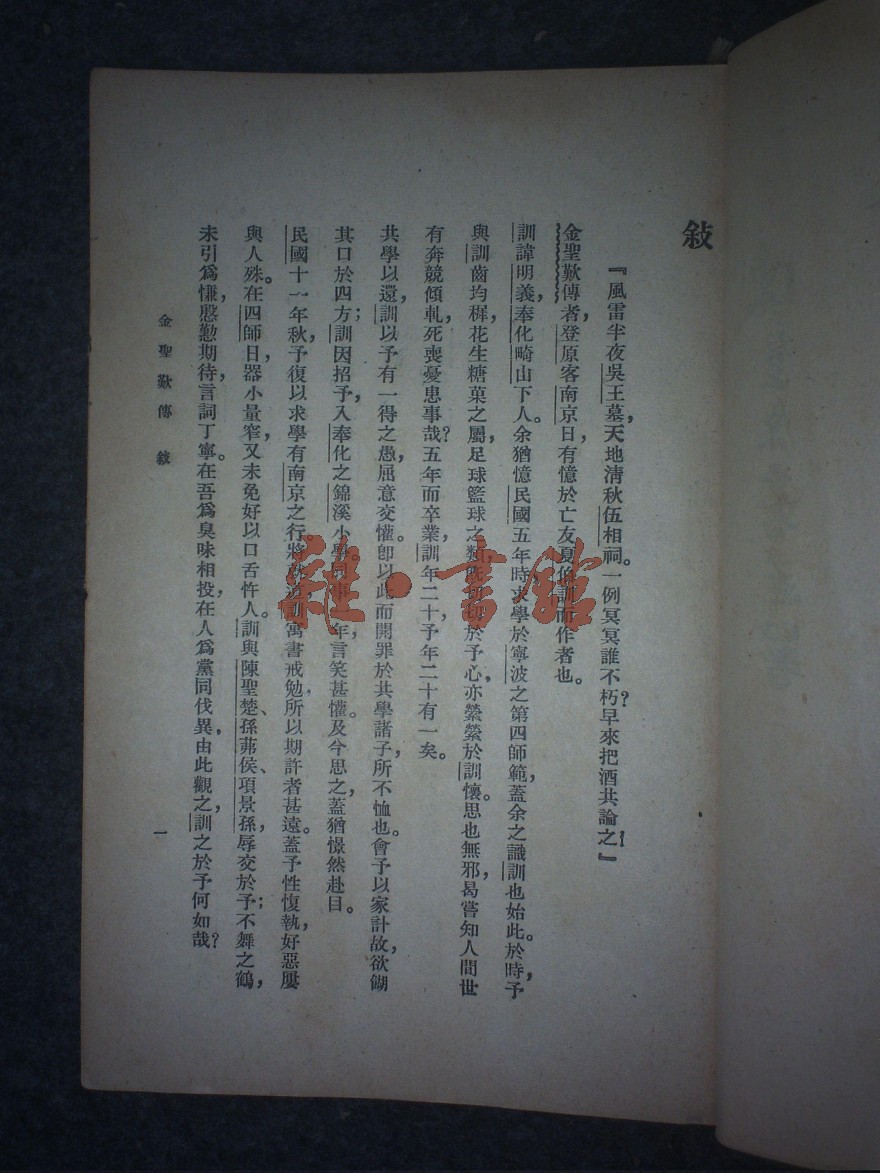 敍
『風雷半夜吳王墓，天地清秋伍相祠。一例冥冥誰不朽？早來把酒共論之！』
金聖歎傳者，登原客南京日，有憶於亡友夏伯訓而作者也。
訓諱明義，奉化畸山下人。余猶憶民國五年時，求學於寧波之第四師範，蓋余之識訓也始此。於時，予
與訓齒均穉，花生糖菓之屬，足球籃球之類，既切切於予心，亦縈縈於訓懷。思也無邪，曷嘗知人間世
有奔競傾軋，死喪憂患事哉？五年而卒業，訓年二十，予年二十有一矣。
共學以還，訓以予有一得之愚，屈意交懽。卽以此而開罪於共學諸子，所不恤也。會予以家計故，欲餬
其口於四方；訓因招予，入奉化之錦溪小學，同事一年，言笑甚懽。及今思之，蓋猶憬然赴目。
民國十一年秋，予復以求學有南京之行。將就道，訓寓書戒勉，所以期許者甚遠。蓋予性愎執，好惡屢
與人殊。在四師日，器小量窄，又未免好以口舌忤人。訓與陳聖楚、孫茀侯、項景孫，辱交於予；不舞之鶴，
未引爲慊，慇懃期待，言詞丁寧。在吾爲臭味相投，在人爲黨同伐異，由此觀之，訓之於予何如哉？
金聖歎傳 敍
一
雜·書館